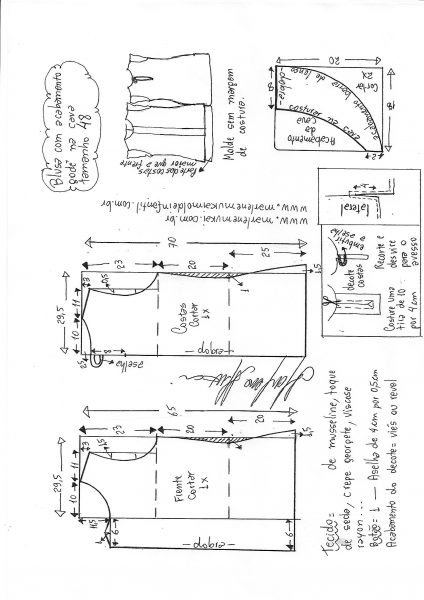 Blusa com acabamento
godê na cava
tamanho 48
Parte das costas
maior que a frente
Molde sem margem
de costura.
20
Cortar
2X
dobra
8
18
2
Acabamento
da
cava
www.marlenemukaimoldeinfantil.com.br
www.marlenemukai.com.br
lateral
embutir a
aselha
decote
costas
Recorte e
desvire
para o
avesso
Costure uma
tira de 10
por 4cm
70
23
20
25
29,5
11
10
3
1,5
1
1,5
8
aselha
Costas
Cortar
1x
dobra
65
23
20
20
29,5
11
10
3
1,5
Frente
Cortar
1x
dobra
6
6
Tecido= de musseline, toque
de seda, crepe georgete, viscose
rayon...
Botão= 1 — Aselha de 4cm por 0,5cm
Acabamento do decote= viés ou revel